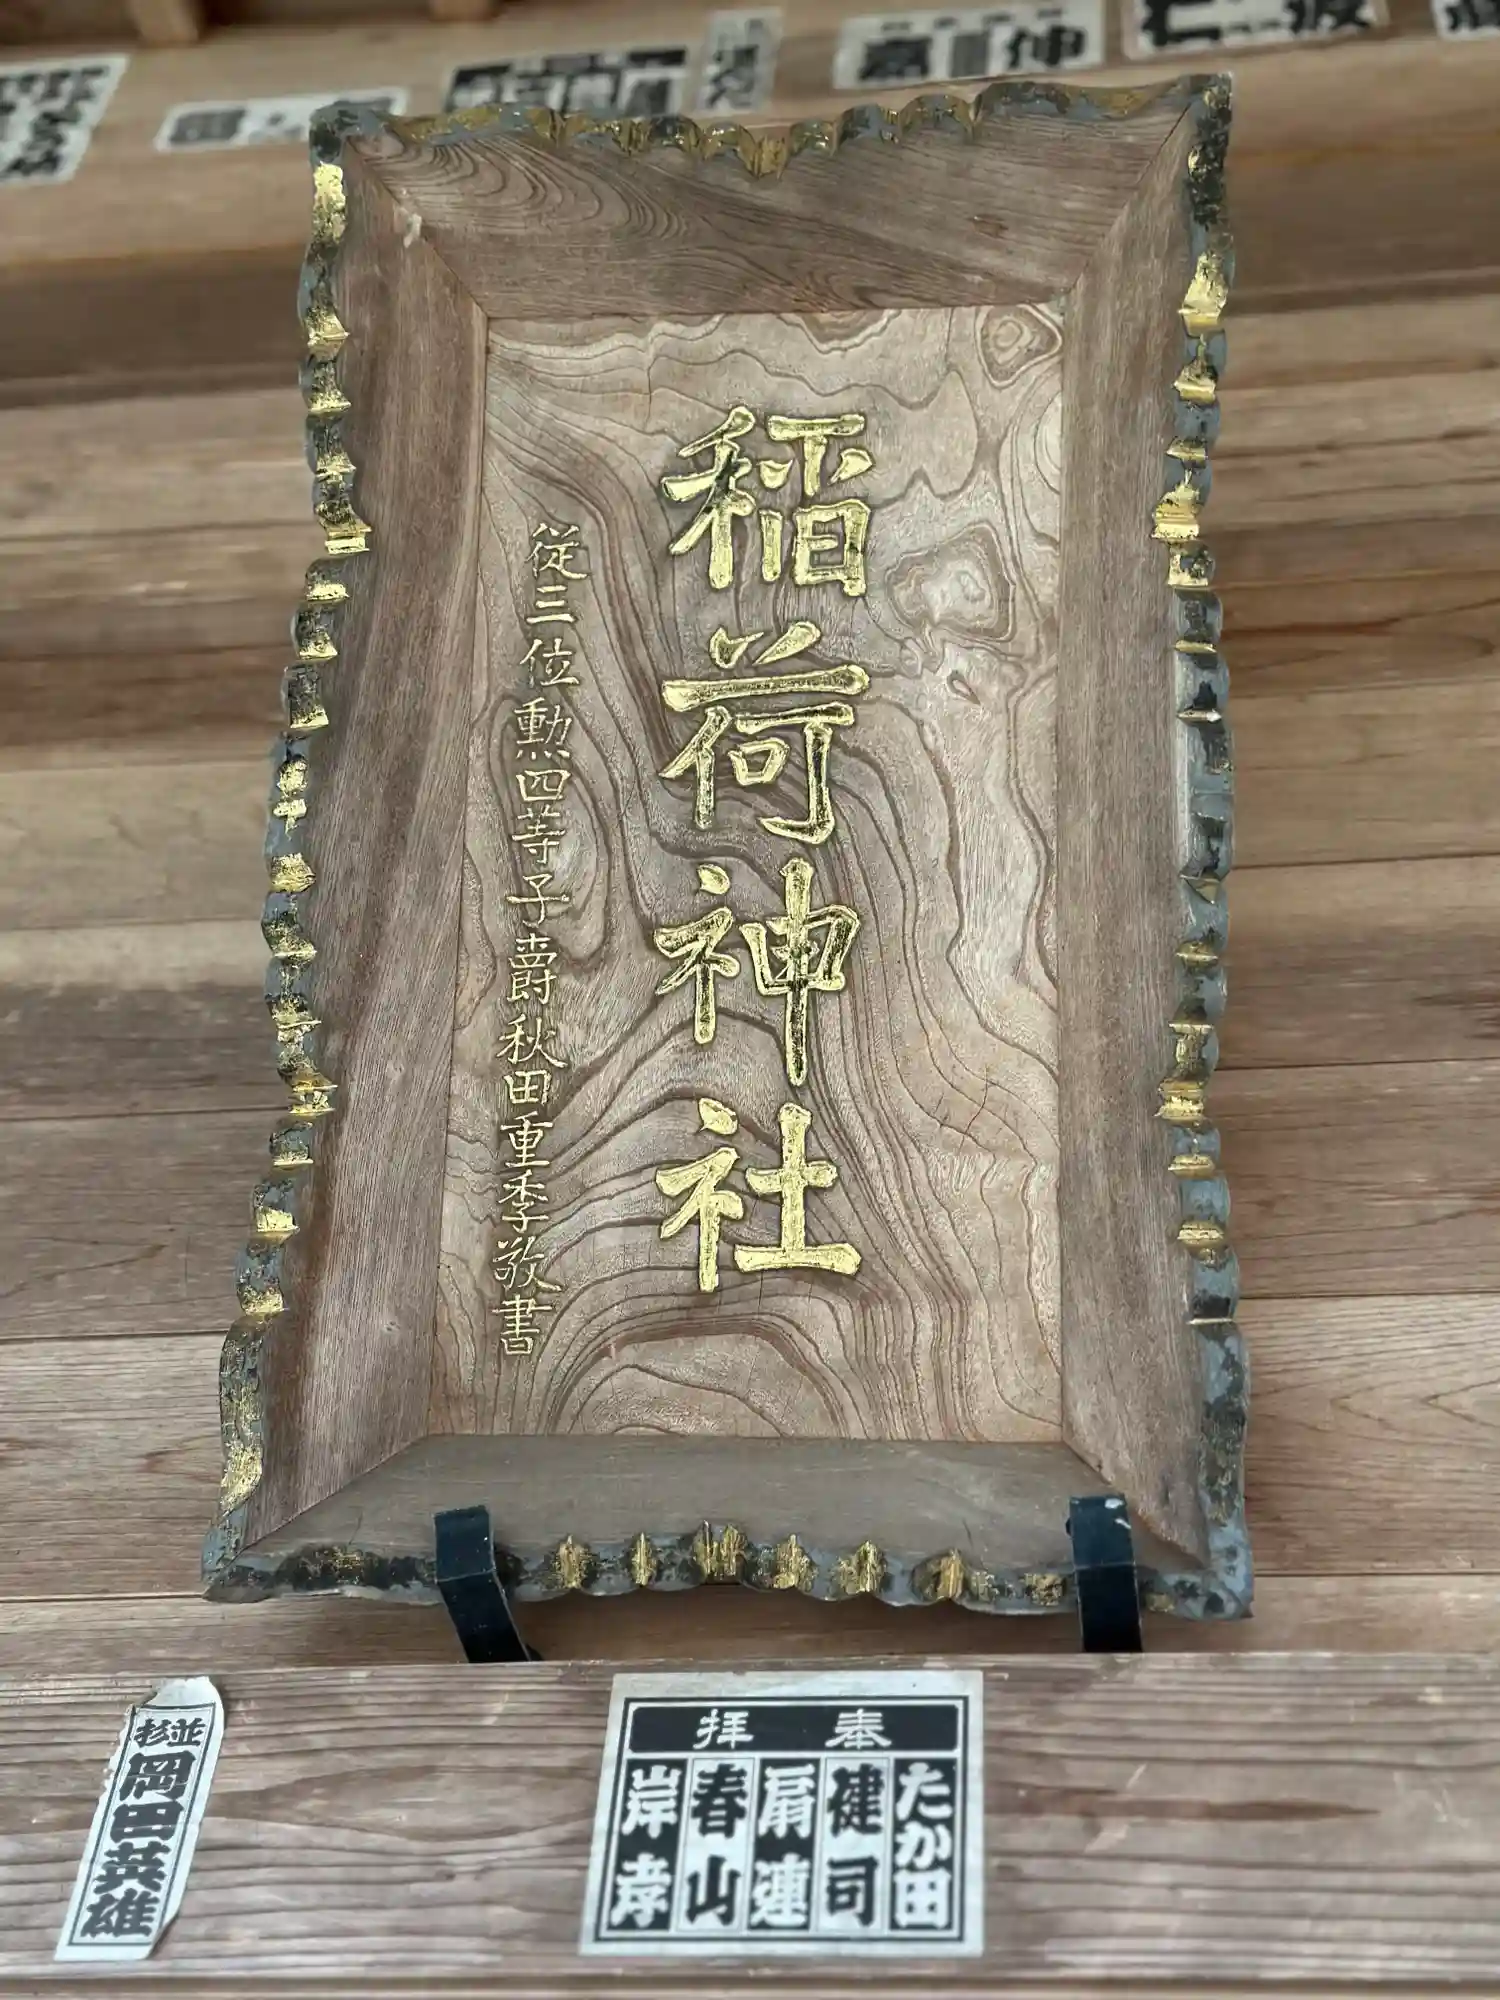 稲荷神社
従三位勲四等子爵秋田重季敬書
奉拝
たか田
健司
扇連
春山
岸孝
杉並
岡田英雄